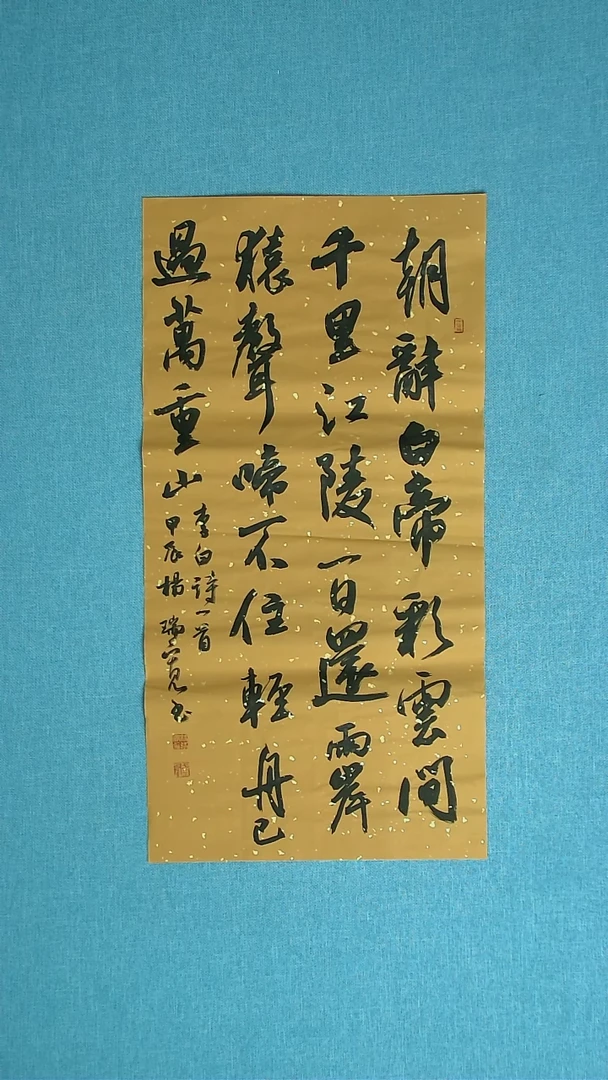 朝辭白帝彩雲間
千里江陵一日還兩岸
猿聲啼不住輕舟已
過萬重山
李白詩一首
甲辰楊瑞書